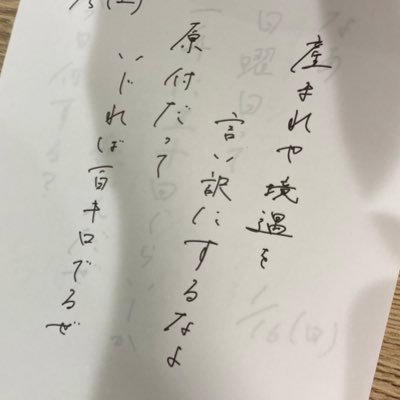 産まれや境遇を
言い訳にするなよ
原付だって
いじれば百キロでるぜ
1/16(日)